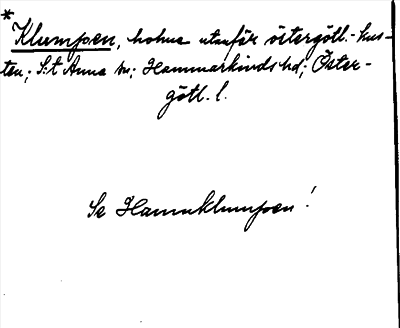 *
Klumpen, holme utanför östergötl.-kus-
ten; S:t Anna sn; Hammarkinds hd; Öster-
götl. l.
Se Hamnklumpen!